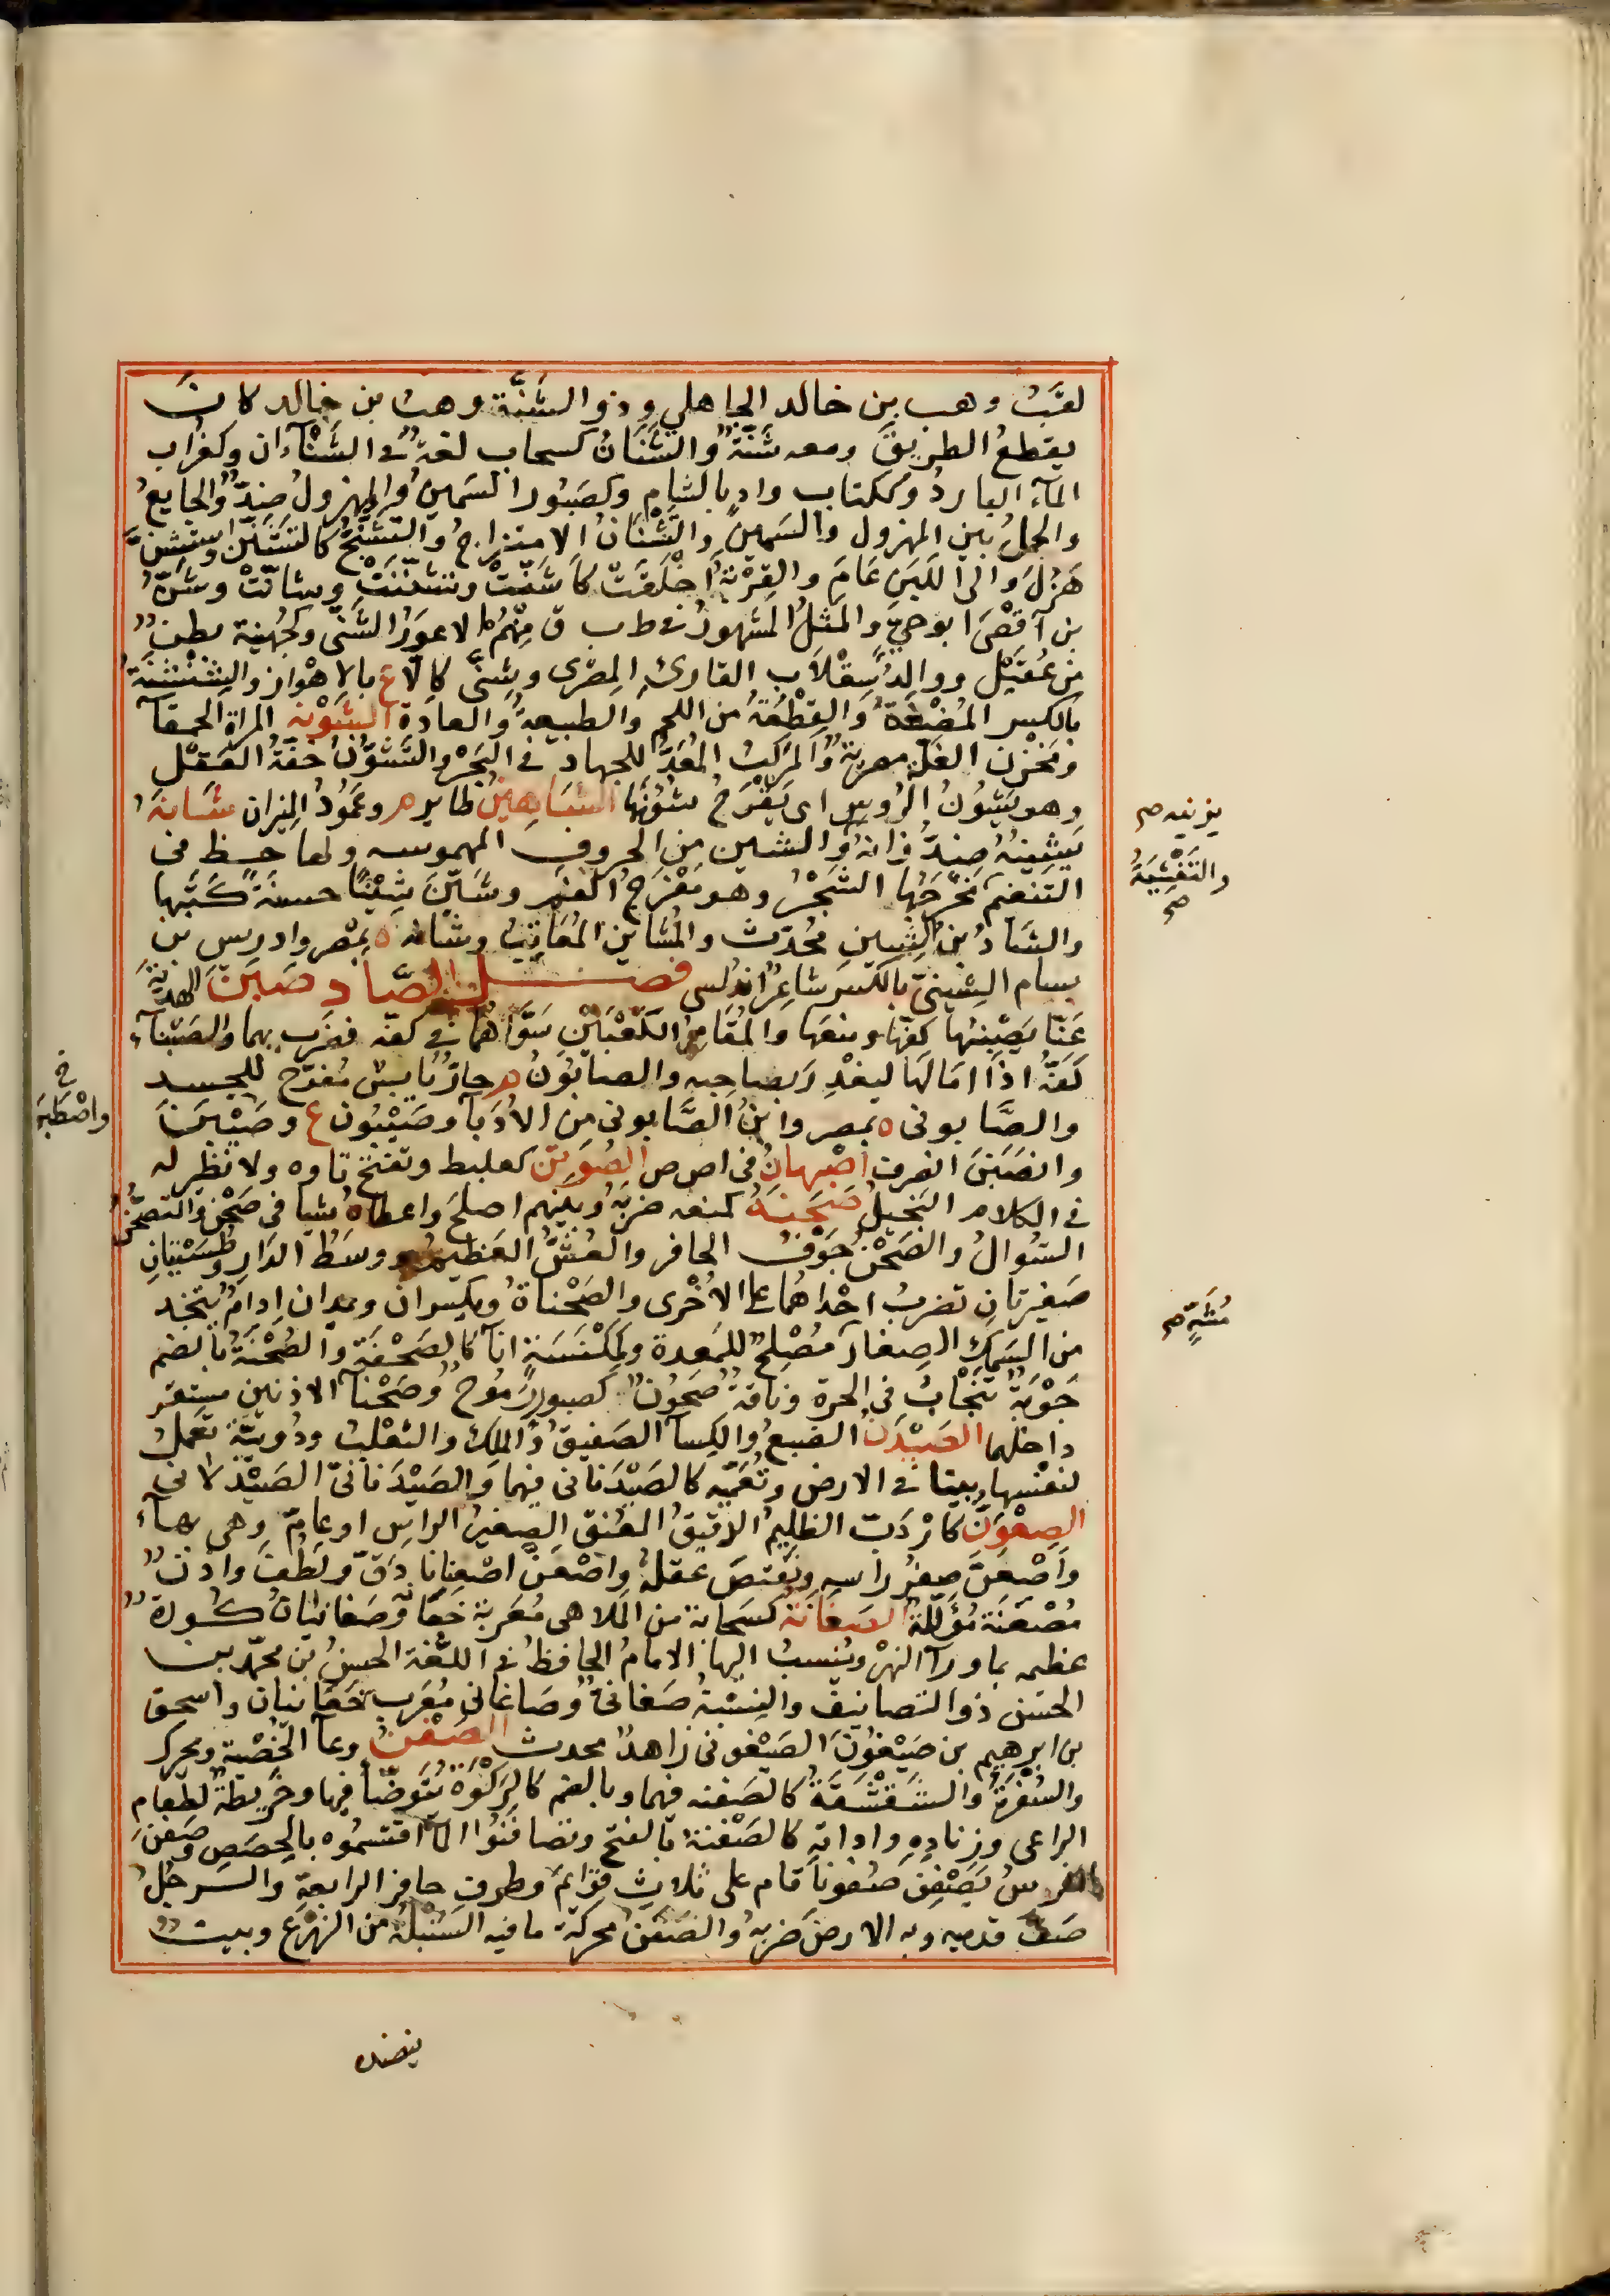 لقبُ وهب بن خالد الجاهلي وذو الشَنَّة وهب بن خالد كان
يقطع الطريق ومعه شَنَّةٌ والشَنَانُ كسحاب لغةٌ في الشَنْآن وكغراب
المآء البارد وككتاب وادٍ بالشام وكصبور السمين والمهزول ضدٌّ والجايع
والجمل بين المهزول والسمين والتَّشْنَانُ الامتزاج والتشنّج كالتشنّن واستشنّ
هَزُلَ والى اللبن عَامَ والقِرْبةُ اخْلَقَتْ كاشَنَّتْ وتشنّنَتْ وتشانّتْ وشَنُّ
بن اَفْصَى ابو حيّ والمثل المشهور في ط ب ق منهم الاعور الشَّنّي وكجُهينة بطن
من عُقَيْل ووالد سِقْلَاب القارئ المصرى وشِنّى كالّا ع بالاهواز والشِنْشِنَةُ
بالكسر المُضْغَةُ والقِطْعَةُ من اللحم والطبيعة والعادة الشَوْنَة المراة الحمقآ
ومخزن الغلّة مصرية والمركب المُعَدُّ للجهاد في البحر والتَشَوُّنُ خفةُ العَقْل
وهو يَشُونُ الرُوس اى يَفْرُج شئُونَها الشَاهِين طاير م وعَمُودُ الميزان شَانَهُ
يَشِينُهُ ضدّ زانهُ والشين من الحروف المهموسه ولها حظ من
التنغم مَخْرَجُها الشَجْرُ وهو مَفْرَج الفم وشَيَّنَ شِيْنًا حسنةً كَتَبَها
والشاد بن الشين محدث والمُشاين المُعَايِبُ وشانه ة بمصر وادريس بن
بسام الشِينيّ بالكسر شاعرٌ اندلسى فصل الصَّاد صَبَنَ الهديّةَ
عَنّا يَصْبِنُها كفّها ومنعها والمُقَامِرُ الكَعْبَيْنِ سَوَّاهُما في كفه فضرب بهما والصَبْنآءُ
كَفُّهُ اذا امَالَها ليغْدِرَ بصاحبهِ والصابُونُ م حارٌّ يابسٌ مُفَرِّح للجسد
والصَّابونى ة بمصر وابنُ الصَّابونى من الاُدَبآ وصَيْبُون ع وصَيَّبَنَ
وانصَبَنَ انصرف اصْبهانُ في اص ص الصُوَتِنُ كعلبط وتفتح تاوه ولا نظير له
في الكلام البخيلُ صَحَنَهُ كمنعه ضربَهُ وبينهم اصلح واعطاه شيا في صَحْن والتصحُّن
السؤالُ والصَحْنُ جَوْفُ الحافر والعُسُّ العَظِيم ووسَطُ الدارِ وطُسَيْتانِ
صغيرتانِ تضرب احداهُما على الاُخْرى والصَحْناةُ ويكسران ويمدان اِدامٌ يتخذ
من السَمِك الصِغارَ مُصْلِحٌ للمعدة وكمِكْنَسَةٍ انآ كالصَحْفَة والصُحْنَةُ بالضم
جَوْبَةٌ تَنْجَابُ في الحرة وناقة صَحُونٌ كصبور رَمُوحٌ وصَحْنا الاذنين مستقر
داخلهما الصَيْدَنُ الضبع والكِسآ الصَفيقُ والمَلِكُ والثعلب ودُويبّة تعمل
لنفسها بيتا في الارض وتُعَمِّيه كالصَيْدَنانى فيهما والصَيْدَنانيّ الصَيْدلانى
الصِعْوَنُّ كارْدَبّ الظليم الدقيقُ العُنق الصغير الراس او عامّ وهى بهآء
وَاصْعَنَّ صغُر راسه ونقص عقلهُ واصْعَنَّ اصْعِنانا دَقَّ ولَطُفَ واذُنٌ
مُصْعَنَّة مُؤَلَّلَةٌ الصَغَانَة كسَحابة من المَلاهى مُعَربة جغانة وصَغانيان كورةٌ
عظيمه بماورآ النهر وينسبُ اليها الامام الحافظُ في اللغة الحسنُ بن محمّد بن
الحسَن ذو التصانيف والنِسْبَةُ صَغانىٌ وصَاغانى مُعَرب جَغَانيان واسحق
بن ابرهيم بن صَيْغُونَ الصَيْغونى زاهدٌ محدث الصَفَنُ وعآ الخُصْيَة ويحرك
والسُفْرةُ والشِقْشِقَةُ كالصَفنه فيهما وبالضم كالرَكْوَةِ يُتَوَضّأ فيها وخَريطةٌ لطعام
الراعى وزنادِهِ واداتهِ كالصَفْنة بالفتح وتصافَنُوا المآ اقتسمُوه بالحِصَصِ وصَفَنَ
الفرسُ يَصْفِن صُفونًا قام على ثلاث قوائمَ وطرف حافر الرابعة والرجُلُ
صَفَّ قدميه وبه الارضَ ضربه والصَفَنُ محركة ما فيه السُنْبلَة من الزرع وبيت
يزينه صح
والنَفْشِيَةُ
صح
خ
واصْطبَنَ
مُشَهٍّ صح
ينضده